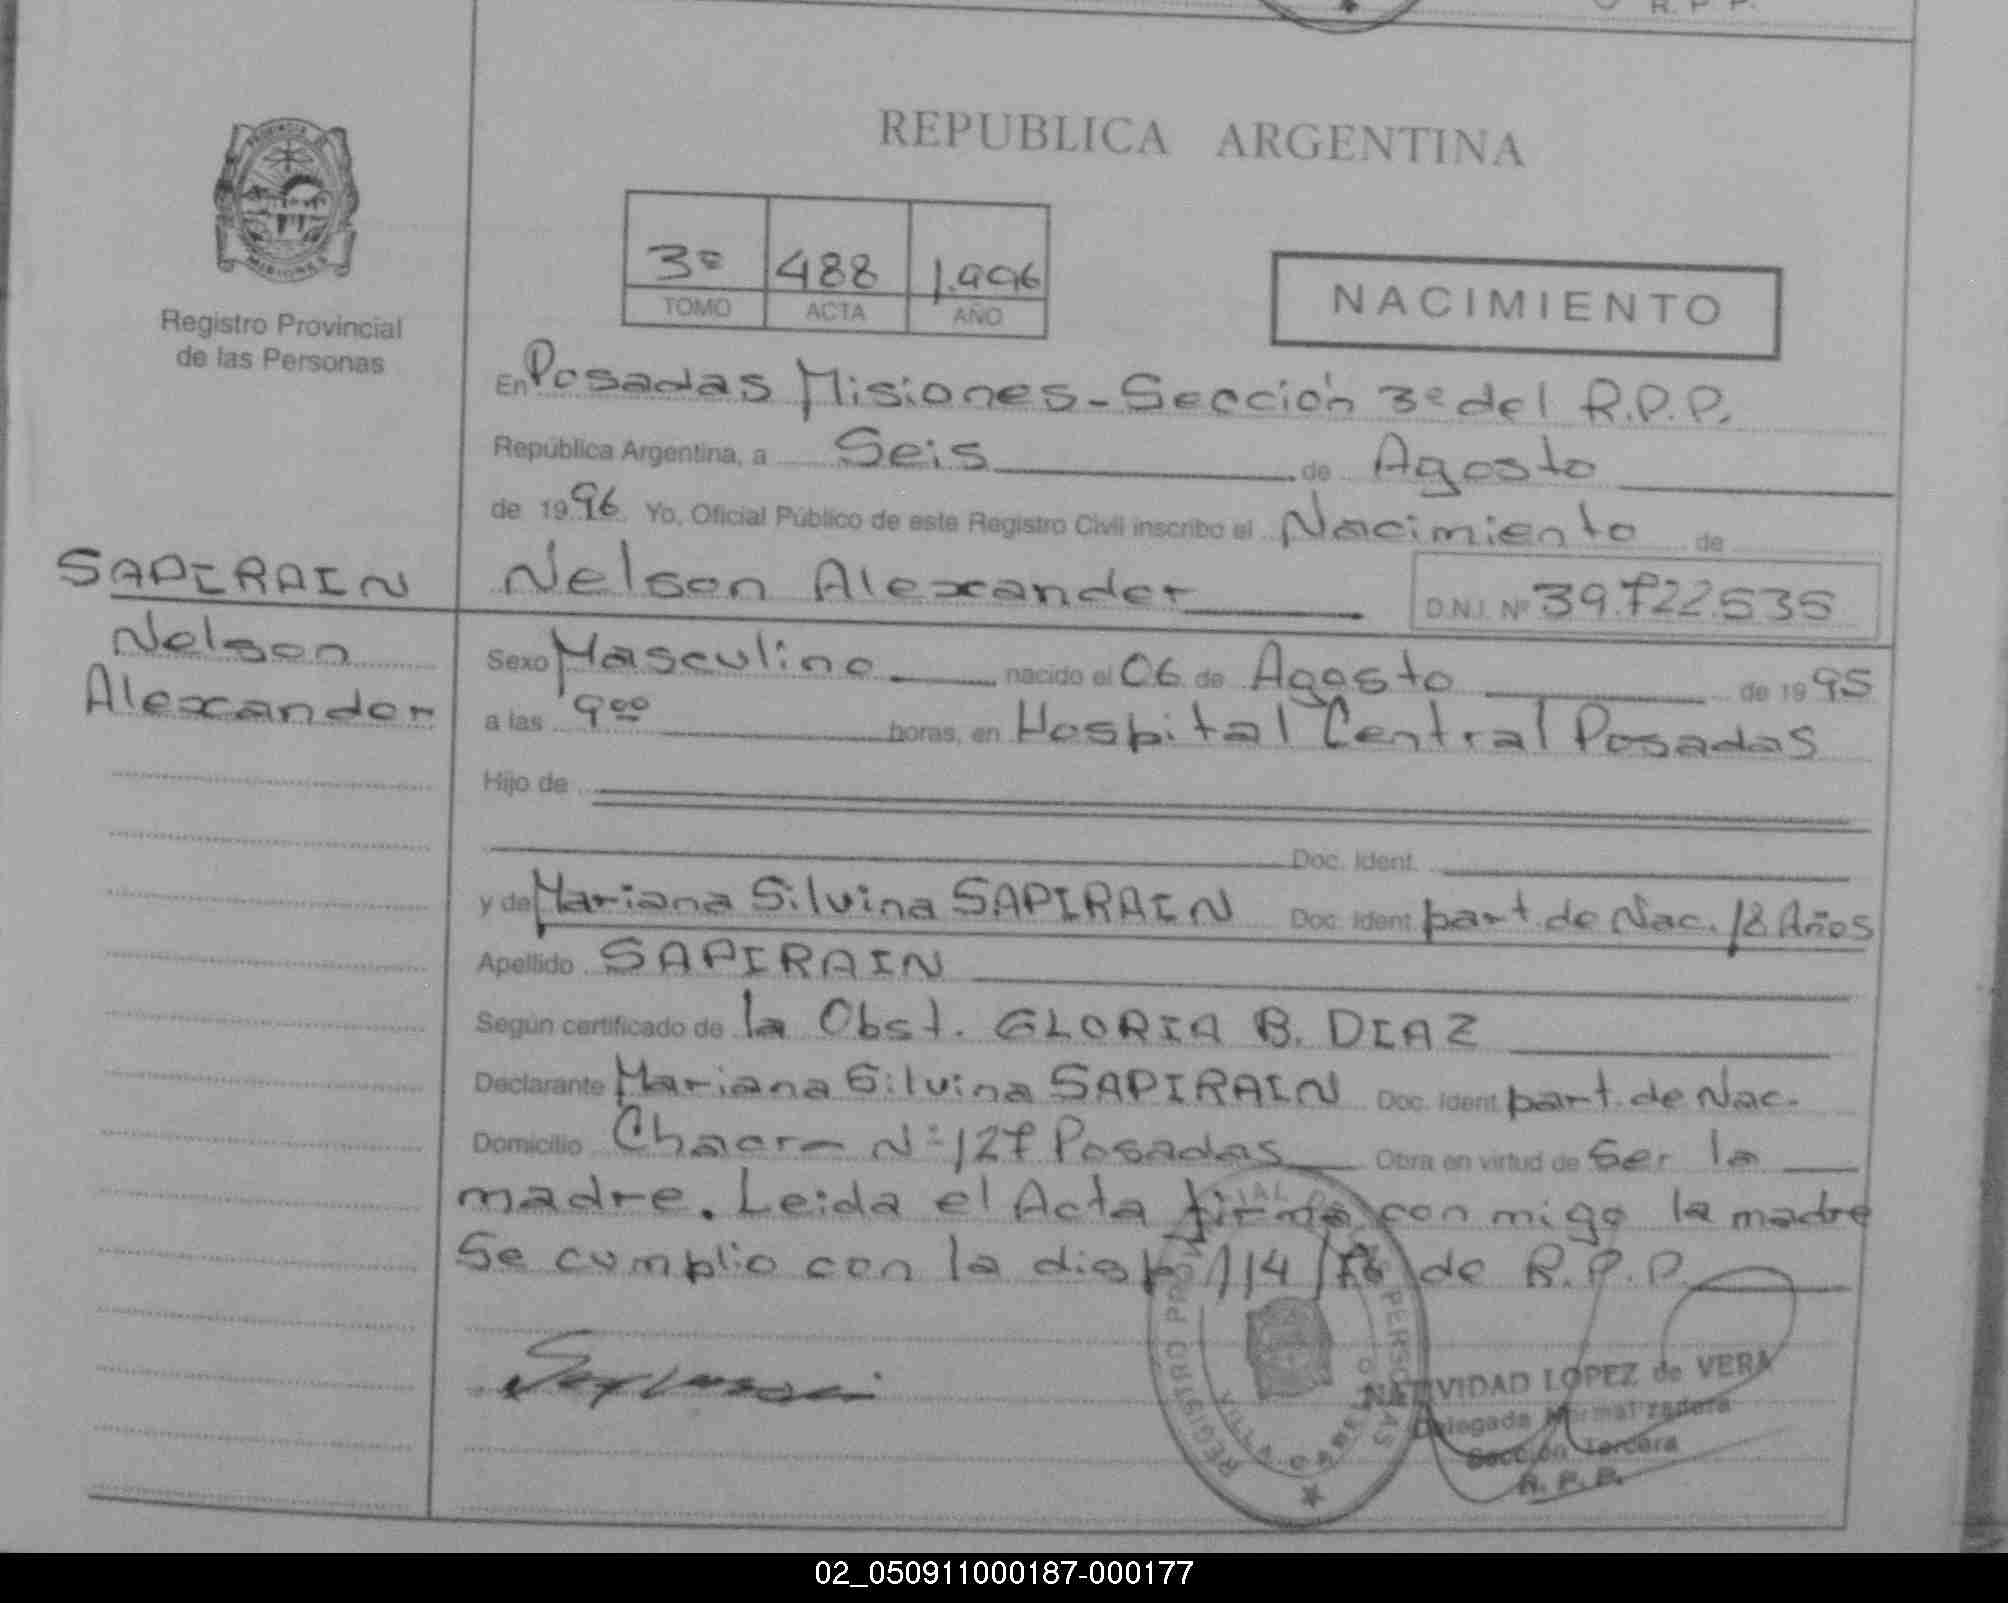 R. P. P.
REPUBLICA ARGENTINA
PROVINCIA
MISIONES
Registro Provincial
de las Personas
3º 488 1.996
TOMO ACTA AÑO
NACIMIENTO
En Posadas Misiones - Sección 3º del R.P.P.
República Argentina, a Seis de Agosto
de 1996 Yo, Oficial Público de este Registro Civil inscribo el Nacimiento de
SAPIRAIN
Nelson
Alexander
Nelson Alexander D.N.I. Nº 39.722.535
Sexo Masculino nacido el 06 de Agosto de 1995
a las 9 00 horas, en Hospital Central Posadas
Hijo de
Doc. Ident.
y de Mariana Silvina SAPIRAIN Doc. Ident. part. de Nac. 18 Años
Apellido SAPIRAIN
Según certificado de la Obst. GLORIA B. DIAZ
Declarante Mariana Silvina SAPIRAIN Doc. Ident. part. de Nac.
Domicilio Chacra Nº 127 Posadas Obra en virtud de Ser la
madre. Leida el Acta firma con migo la madre
Se cumplio con la disp. 114/ de R.P.P.
REGISTRO PERSONAS
NATIVIDAD LOPEZ de VERA
Delegada Normalizadora
Sección Tercera
R. P. P.
02_050911000187-000177